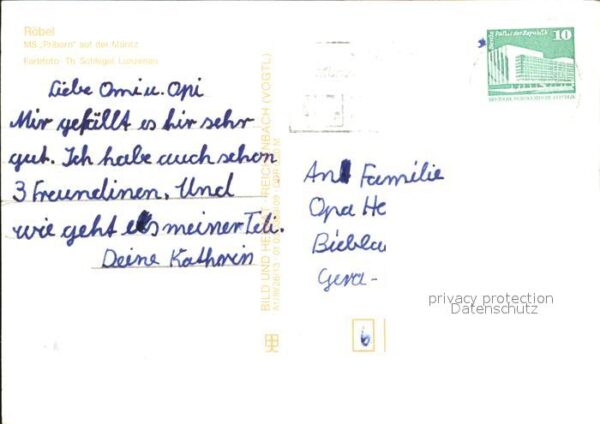 Röbel
MS „Präborn" auf der Müritz
Farbfoto: Th. Schlegel
Liebe Omi u. Opi
Mir gefällt es hir sehr
gut. Ich habe auch schon
3 Freundinen. Und
wie geht es meiner Teli.
Deine Kathrin
BILD UND REICHENBACH (VOGTL)
10
Palast der Republik
An Familie
Opa He
Biebla
Gera-
6
privacy protection
Datenschutz